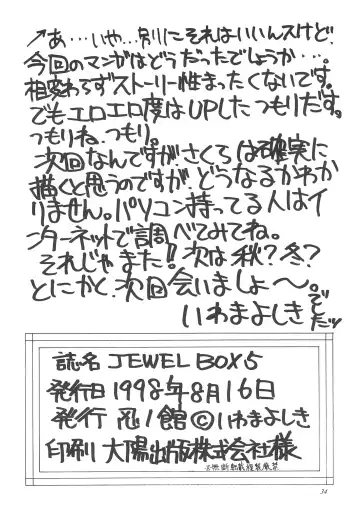 ↗あ…いや…別にそれはいいんスけど。
今回のマンガはどうだったでしょうか…。
相変わらずストーリー性まったくないです。
でもエロエロ度はUPしたつもりだす。
つもりね、つもり。
次回なんですが、さくらは確実に
描くと思うのですが、どうなるかわか
りません。パソコン持ってる人はイ
ンターネットで調べてみてね。
それじゃまた!!次は秋?冬?
とにかく、次回会いましょ〜。
いわまよしき でしたッ
誌名 JEWEL BOX 5
発行日 1998年8月16日
発行 忍ノ館 © いわまよしき
印刷 大陽出版株式会社様
※無断転載複製厳禁
34